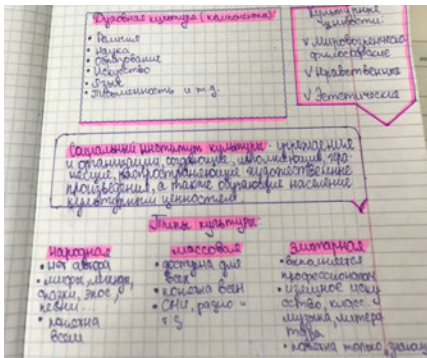 Духовная культура (компоненты)
• Религия
• Наука
• Образование
• Искусство
• Язык
• Письменность и т.д.
Культурные
ценности:
√ Мировоззренческо-
философские
√ Нравственные
√ Эстетические
Социальный институт культуры - учреждения
и организации, создающие, исполняющие, хра-
нящие, распространяющие художественные
произведения, а также обучающие население
культурным ценностям.
Типы культуры:
народная
• нет автора
• мифы, легенды,
сказки, эпос,
песни...
• понятна
всем
массовая
• доступна для
всех
• понятна всем
• СМИ, радио и
т.д
элитарная
• выполняется
профессионалом
• изящное иску
сство, класс.
музыка, литера
тура
• понятна только